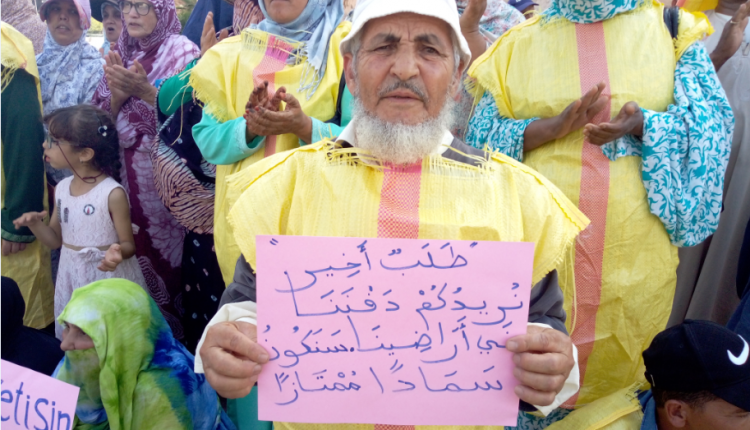 "طَلَبٌ أَخِير"
نُرِيدُكُمْ دَفْنَنَا
فِي أَرَاضِينَا. سَنَكُونُ
سَمَادًا مُمْتَازًا
etiSin